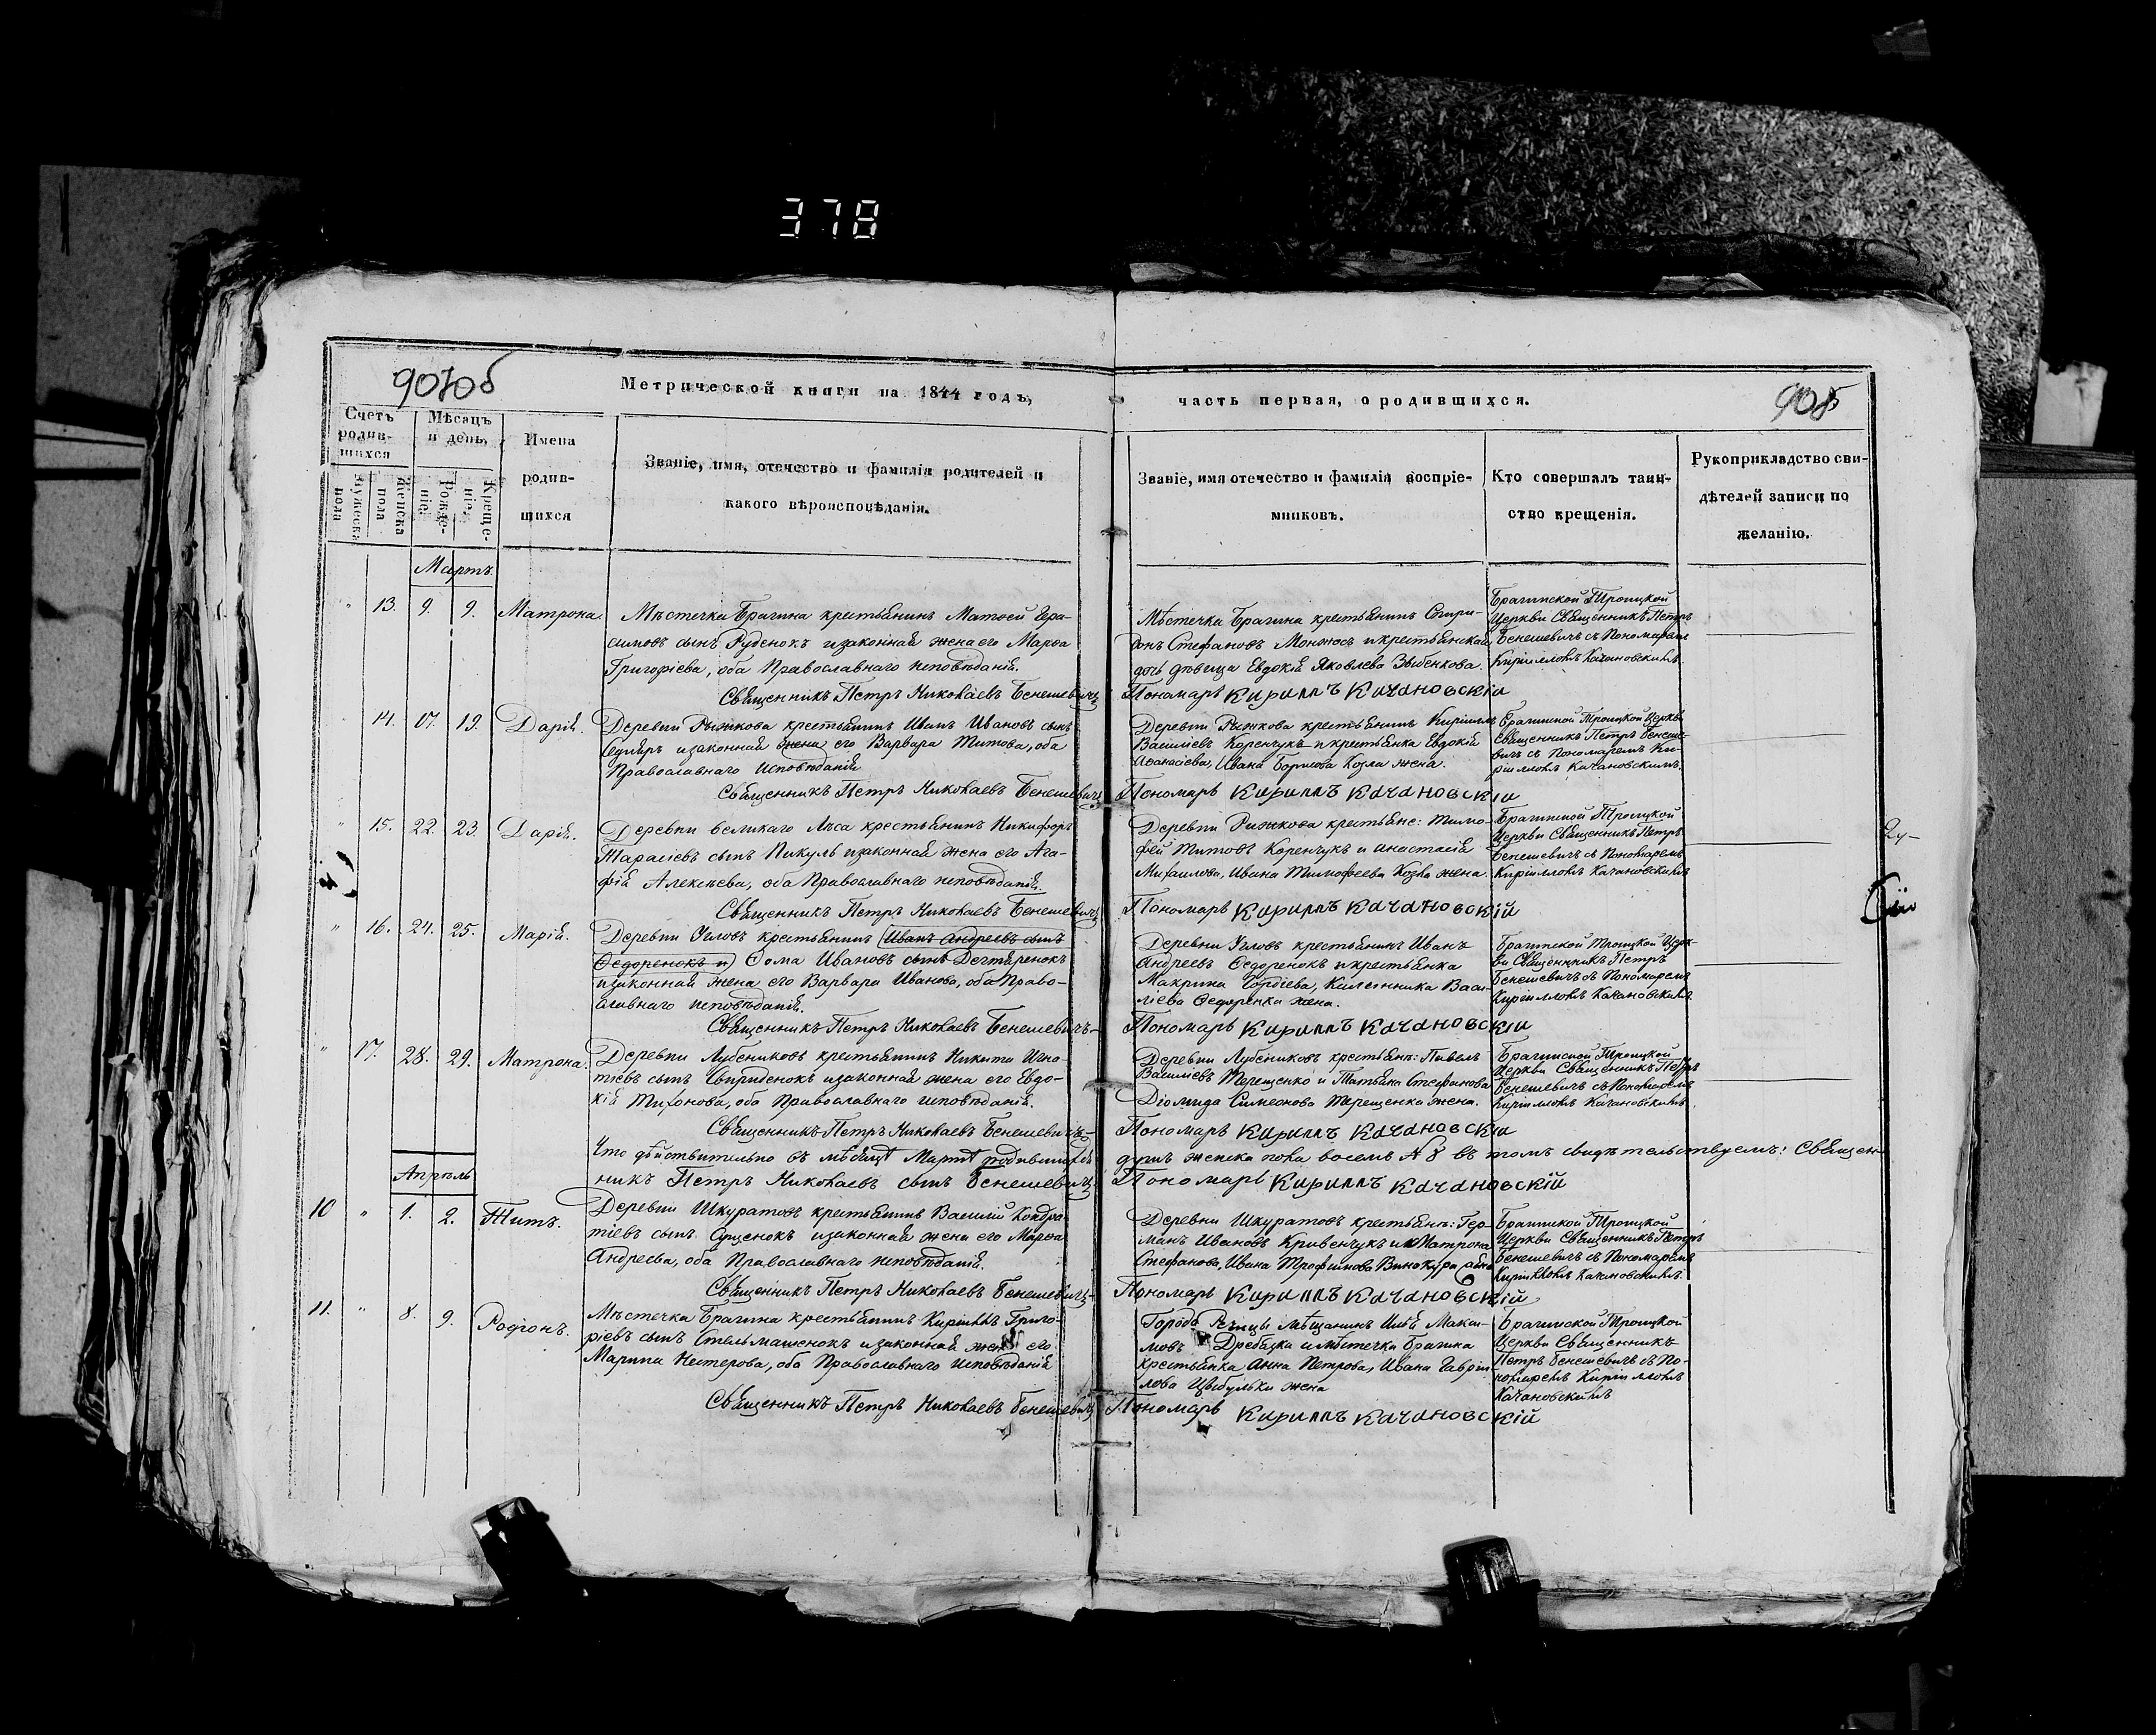 378
907об
908
Метрической книги на 1844 годъ,
часть первая, о родившихся.
Счетъ родив-шихся
Мѣсяцъ и день,
Имена родив-шихся
Званіе, имя, отечество и фамилія родителей и
какого вѣроисповѣданія.
Званіе, имя отечество и фамилія воспріе-
мниковъ.
Кто совершалъ таин-
ство крещенія.
Рукоприкладство сви-
дѣтелей записи по
желанію.
Мужеска пола
Женска пола
Рожде-ніе.
Креще-ніе.
Мартъ
" 13. 9. 9. Матрона.
Мѣстечка Брагина крестьянинъ Матѳей Гера-
симовъ сынъ Руденокъ и законная жена его Марѳа
Григоріева, оба Православнаго исповѣданія.
Священникъ Петръ Николаевъ Бенешевичъ
Мѣстечка Брагина крестьянинъ Спири-
донъ Стефановъ и крестьянская
дочь дѣвица Евдокія Яковлева
Пономарь Кириллъ Качановскій
Брагинской Троицкой
Церкви Священникъ Петръ
Бенешевичъ съ Пономаремъ
Кирилломъ Качановскимъ
14. 17. 19. Дарія.
Деревни Рыжкова крестьянинъ Иванъ Ивановъ сынъ
и законная жена его Варвара Титова, оба
Православнаго Исповѣданія
Священникъ Петръ Николаевъ Бенешевичъ
Деревни Рыжкова крестьянинъ Кириллъ
Василіевъ Коренчукъ и крестьянка Евдокія
Аѳанасіева, Ивана Борисова Козла жена.
Пономарь Кириллъ Качановскій
Брагинской Троицкой Церкви
Священникъ Петръ Бенеше-
вичъ съ Пономаремъ Ки-
рилломъ Качановскимъ.
" 15. 22. 23. Дарія.
Деревни великаго Лѣса крестьянинъ Никифоръ
Тарасіевъ сынъ Пикуль и законная жена его Ага-
фія Алексѣева, оба Православнаго исповѣданія.
Священникъ Петръ Николаевъ Бенешевичъ
Деревни Рыжкова крестьяне: Тимо-
фей Титовъ Коренчукъ и Анастасія
Михаилова, Ивана Тимофеева Козла жена.
Пономарь Кириллъ Качановскій
Брагинской Троицкой
Церкви Священникъ Петръ
Бенешевичъ съ Пономаремъ
Кирилломъ Качановскимъ
" 16. 24. 25. Марія.
Деревни Угловъ крестьянинъ (Иванъ Андреевъ сынъ
Ѳедоренокъ и) Ѳома Ивановъ сынъ Дегтяренокъ
и законная жена его Варвара Иванова, оба Право-
славнаго исповѣданія.
Священникъ Петръ Николаевъ Бенешевичъ
Деревни Угловъ крестьянинъ Иванъ
Андреевъ Ѳедоренокъ и крестьянка
Макрина Гордіева, Василіева Ѳедоренка жена.
Пономарь Кириллъ Качановскій
Брагинской Троицкой Церк-
ви Священникъ Петръ
Бенешевичъ съ Пономаремъ
Кирилломъ Качановскимъ
" 17. 28. 29. Матрона.
Деревни Лубениковъ крестьянинъ Никита Игна-
тіевъ сынъ Свириденокъ и законная жена его Евдо-
кія Тихонова, оба Православнаго исповѣданія.
Священникъ Петръ Николаевъ Бенешевичъ
Деревни Лубениковъ крестьян: Павелъ
Василіевъ Терещенко и Татьяна Стефанова
Діомида Симеонова Терещенка жена.
Пономарь Кириллъ Качановскій
Брагинской Троицкой
Церкви Священникъ Петръ
Бенешевичъ съ Пономаремъ
Кирилломъ Качановскимъ
Что дѣйствительно въ мѣсяцѣ Мартѣ родившихся душъ женска пола восемь № 8 въ томъ свидѣтельствуемъ: Священ-
никъ Петръ Николаевъ сынъ Бенешевичъ Пономарь Кириллъ Качановскій
Апрѣль
10 " 1. 2. Титъ.
Деревни Шкуратовъ крестьянинъ Василій Кондра-
тіевъ сынъ и законная жена его Марѳа
Андреева, оба Православнаго исповѣданія.
Священникъ Петръ Николаевъ Бенешевичъ
Деревни Шкуратовъ крестьян: Гер-
манъ Ивановъ Кривенчукъ и Матрона
Стефанова, Ивана Трофимова Винокура жена
Пономарь Кириллъ Качановскій
Брагинской Троицкой
Церкви Священникъ Петръ
Бенешевичъ съ Пономаремъ
Кирилломъ Качановскимъ.
11. " 8. 9. Родіонъ.
Мѣстечка Брагина крестьянинъ Кириллъ Григо-
ріевъ сынъ Стельмашенокъ и законная жена его
Марина Нестерова, оба Православнаго Исповѣданія
Священникъ Петръ Николаевъ Бенешевичъ
Города Речицы мѣщанинъ Илія Макси-
мовъ и мѣстечка Брагина
крестьянка Анна Петрова, Ивана Гаврі-
лова Цыбульки жена
Пономарь Кириллъ Качановскій
Брагинской Троицкой
Церкви Священникъ
Петръ Бенешевичъ съ По-
номаремъ Кирилломъ
Качановскимъ